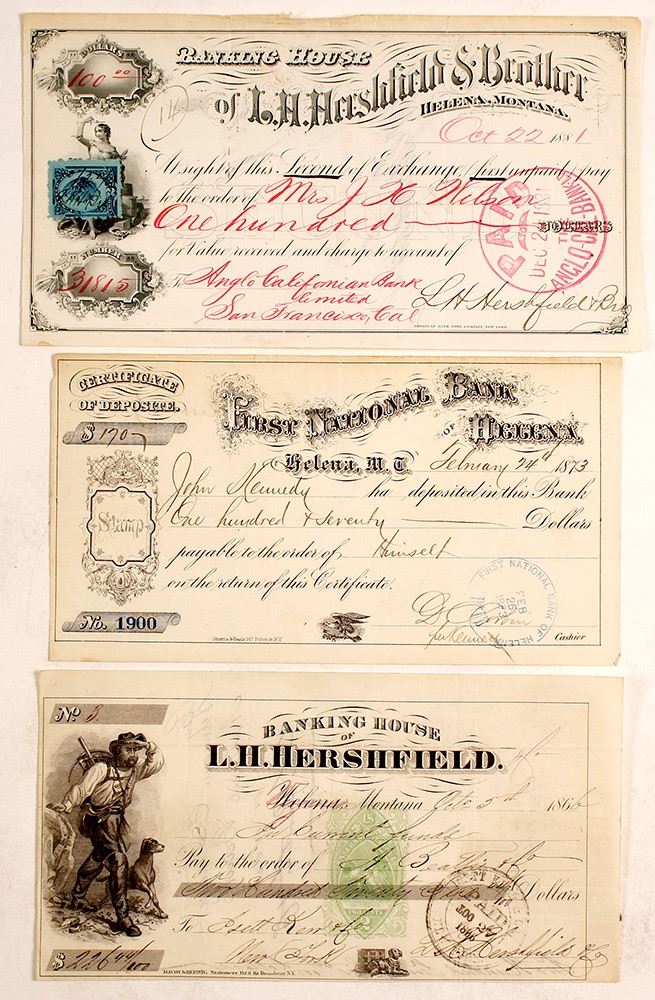 DOLLARS
100 00
BANKING HOUSE
of L.H. Hershfield & Brother
HELENA, MONTANA.
14
Oct 22 1881
At sight of this Second of Exchange, first unpaid, pay
to the order of Mrs J. H. Wilson
One hundred DOLLARS
for Value received and charge to account of
NUMBER
31815
To Anglo Californian Bank
limited
San Francisco, Cal
L H Hershfield & Bro
PAID
DEC 2
THE
ANGLO-CAL-BANK
AMERICAN BANK NOTE COMPANY, NEW YORK
CERTIFICATE
OF DEPOSITE.
$ 170
FIRST NATIONAL BANK
OF HELENA
Helena, M.T. February 24th 1873
John Kennedy ha deposited in this Bank
One hundred & seventy Dollars
payable to the order of Himself
on the return of this Certificate.
Stamp
No. 1900
Cashier
FIRST NATIONAL BANK OF HELENA
FEB
25
1873
No 3
BANKING HOUSE
OF
L.H. HERSHFIELD. & Co
Helena, Montana Oct 5th 1866
In Current funds
Pay to the order of & Co
Two Hundred Twenty Dollars
To & Co
New York
L H Hershfield & Co
$ 226 44/100
1866